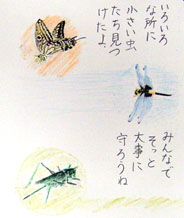 いろいろ
な所に
小さい虫
たち見つ
けたよ。
みんなで
そっと
大事に
守ろうね